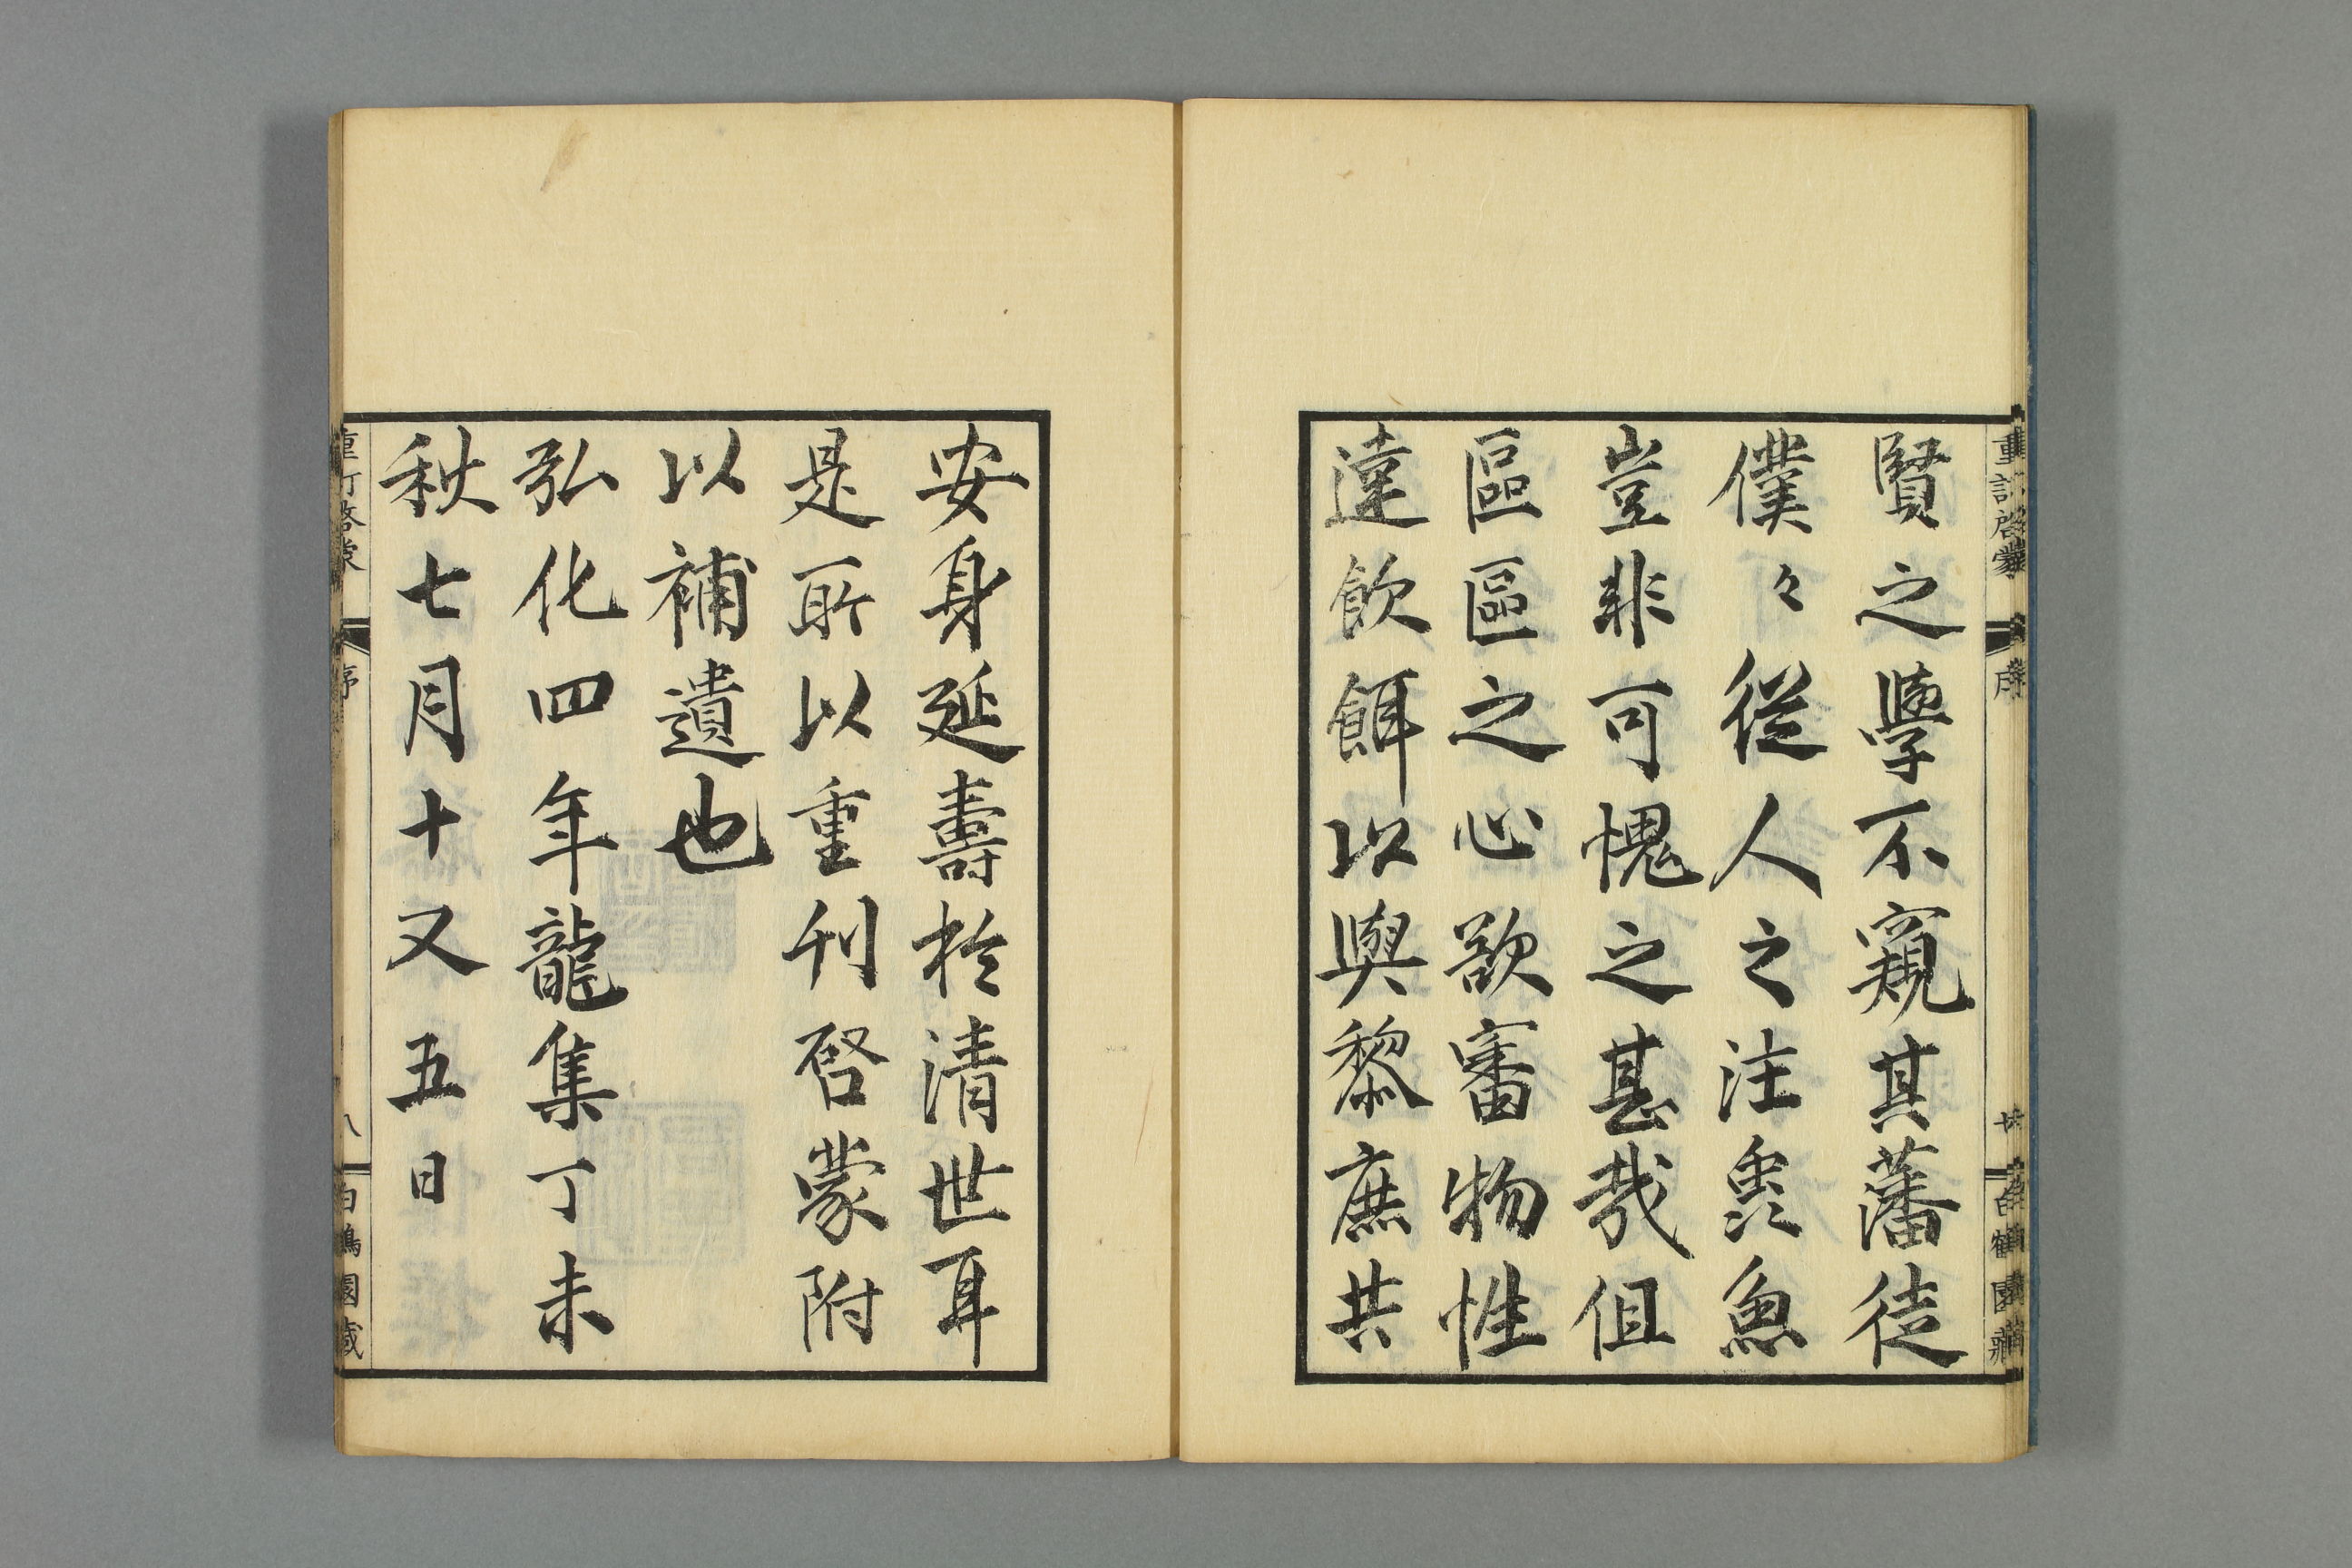 賢之學不窺其藩徒
僕々從人之注蟲魚
豈非可愧之甚哉但
區區之心欲審物性
達飲餌以與黎庶共
安身延壽於清世耳
是所以重刊啓蒙附
以補遺也
弘化四年龍集丁未
秋七月十又五日
重訂啓蒙
序
八